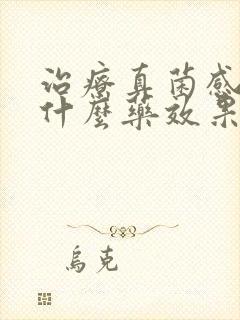 治療真菌感
什麼藥效果
烏克